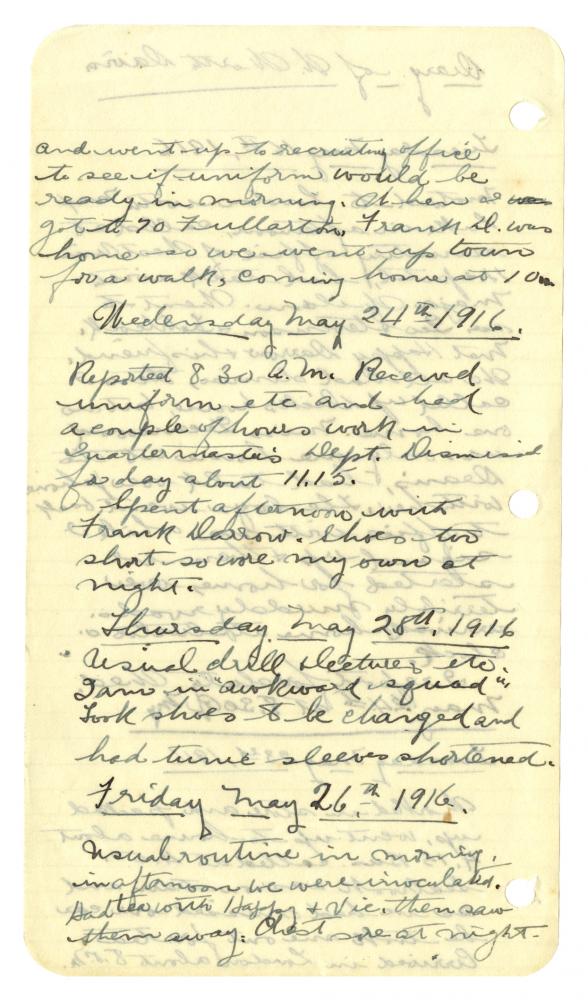 and went up to recruiting office
to see if uniform would be
ready in morning. When we
got to 70 Fullarton, Frank D. was
home so we went up town
for a walk, coming home at 10
Wedensday May 24th 1916.
Reported 8 30 A.M. Received
uniform etc and had
a couple of hours work in
Quartermaster's Dept. Dismissed
for day about 11.15.
Spent afternoon with
Frank Darrow. Shoes too
short so wore my own at
night.
Thursday May 25th, 1916
Usual drill lectures etc.
I am in "awkward squad".
Took shoes to be changed and
had tunic sleeves shortened.
Friday May 26th 1916.
Usual routine in morning,
in afternoon we were inoculated.
Had tea with Happy + Vic. then saw
them away. Chest sore at night.